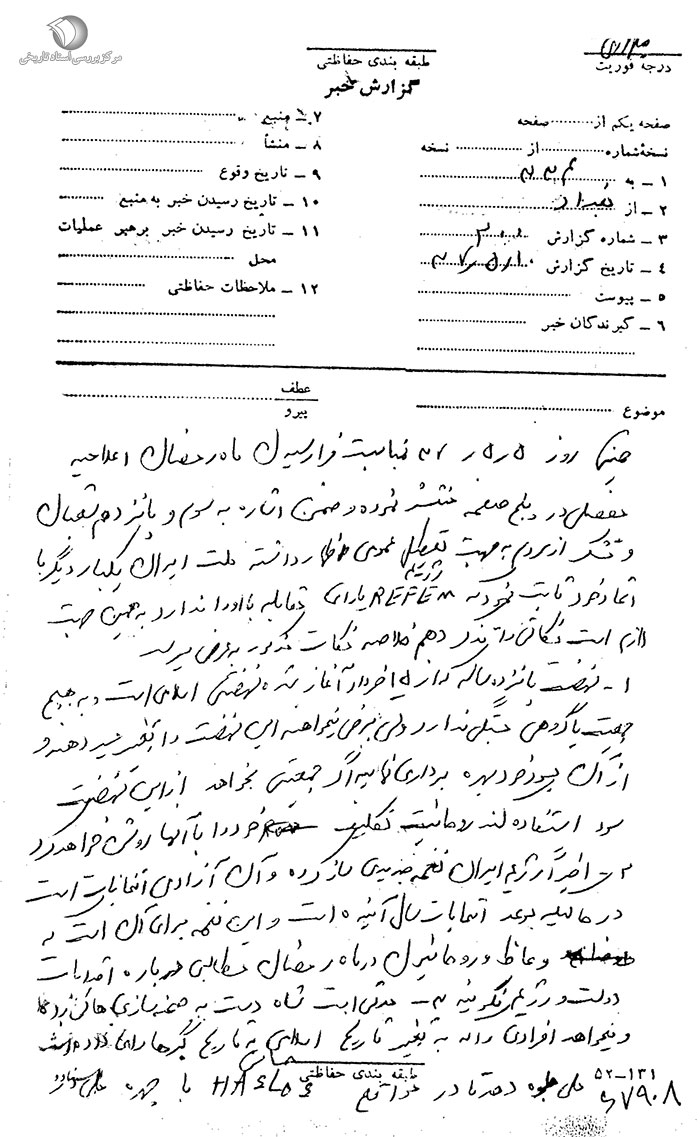 مرکز بررسی اسناد تاریخی
درجه فوریت
طبقه بندی حفاظتی
گزارش خبر
صفحه یکم از صفحه
نسخه شماره از نسخه
۱ ـ به ۳۲۳
۲ ـ از
۳ ـ شماره گزارش
٤ ـ تاریخ گزارش
٥ ـ پیوست
٦ ـ گیرندگان خبر
۷ ـ منبع
۸ ـ منشأ
۹ ـ تاریخ وقوع
۱۰ ـ تاریخ رسیدن خبر به منبع
۱۱ ـ تاریخ رسیدن خبر برهبر عملیات
محل
۱۲ ـ ملاحظات حفاظتی
موضوع
عطف
پیرو
روز بمناسبت فرارسیدن ماه رمضان اعلامیه
مفصلی در پنج صفحه منتشر نموده و ضمن اشاره به سوم و پانزدهم شعبان
و تشکر از مردم به جهت تعطیل عمومی اظهار داشته ملت ایران یکبار دیگر با
اتحاد خود ثابت نمود که رژیم یارای مقابله با او را ندارد به همین جهت
لازم است نکاتی را تذکر دهم خلاصه نکات مذکور به عرض میرسد
۱ ـ نهضت پانزده ساله که از ۱۵ خرداد آغاز شده نهضتی اسلامی است و به هیچ
جمعیت یا گروهی بستگی ندارد ولی برخی میخواهند این نهضت را تغییر مسیر دهند و
از آن بسود خود بهره برداری نمایند اگر جمعیتی بخواهد از این نهضت
سوء استفاده کند روحانیت تکلیف خود را با آنها روشن خواهد کرد
۲ ـ اخیراً رژیم ایران نغمه جدیدی ساز کرده و آن آزادی انتخابات است
در حالیکه موعد انتخابات سال آینده است و این نغمه برای آن است که
وعاظ و روحانیون در ماه رمضان مطالبی درباره اقدامات
دولت و رژیم نگویند ۳ ـ مدتی است شاه دست به صحنه سازی هائی زده
و میخواهد افرادی را که به تغییر تاریخ اسلامی به تاریخ گبرها رأی داده
طبقه بندی حفاظتی
ملی جلوه دهد تا در مواقع با چهره ملی
۵۲-۱۳۱